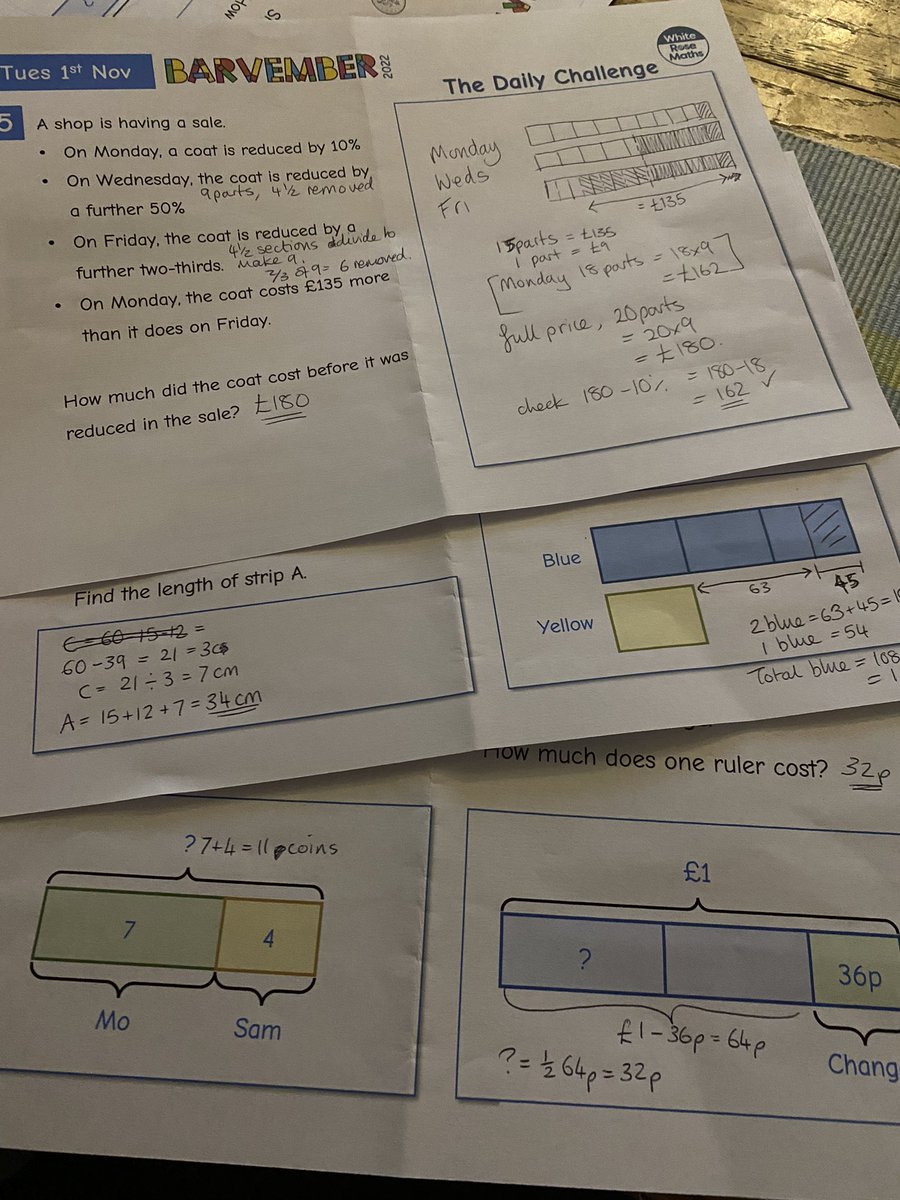 Tues 1st Nov
BARVEMBER 2022
White Rose Maths
The Daily Challenge
5
A shop is having a sale.
• On Monday, a coat is reduced by 10%
• On Wednesday, the coat is reduced by
9 parts, 4½ removed
a further 50%
• On Friday, the coat is reduced by a
4½ sections divide to
further two-thirds. make 9.
2/3 of 9 = 6 removed.
• On Monday, the coat costs £135 more
than it does on Friday.
How much did the coat cost before it was
reduced in the sale? £180
Monday
Weds
Fri
= £135
15 parts = £135
1 part = £9
[Monday 18 parts = 18x9
= £162]
full price, 20 parts
= 20x9
= £180.
check 180 - 10% = 180-18
= 162 ✓
Find the length of strip A.
C = 60-15-12 =
60 - 39 = 21 = 3cs
C = 21 ÷ 3 = 7 cm
A = 15+12+7 = 34cm
Blue
63
45
Yellow
2 blue = 63+45=1
1 blue = 54
Total blue = 108
= 1
How much does one ruler cost? 32p
? 7+4 = 11 p coins
7
4
Mo
Sam
£1
?
36p
£1 - 36p = 64p
Chang
? = ½ 64p = 32p